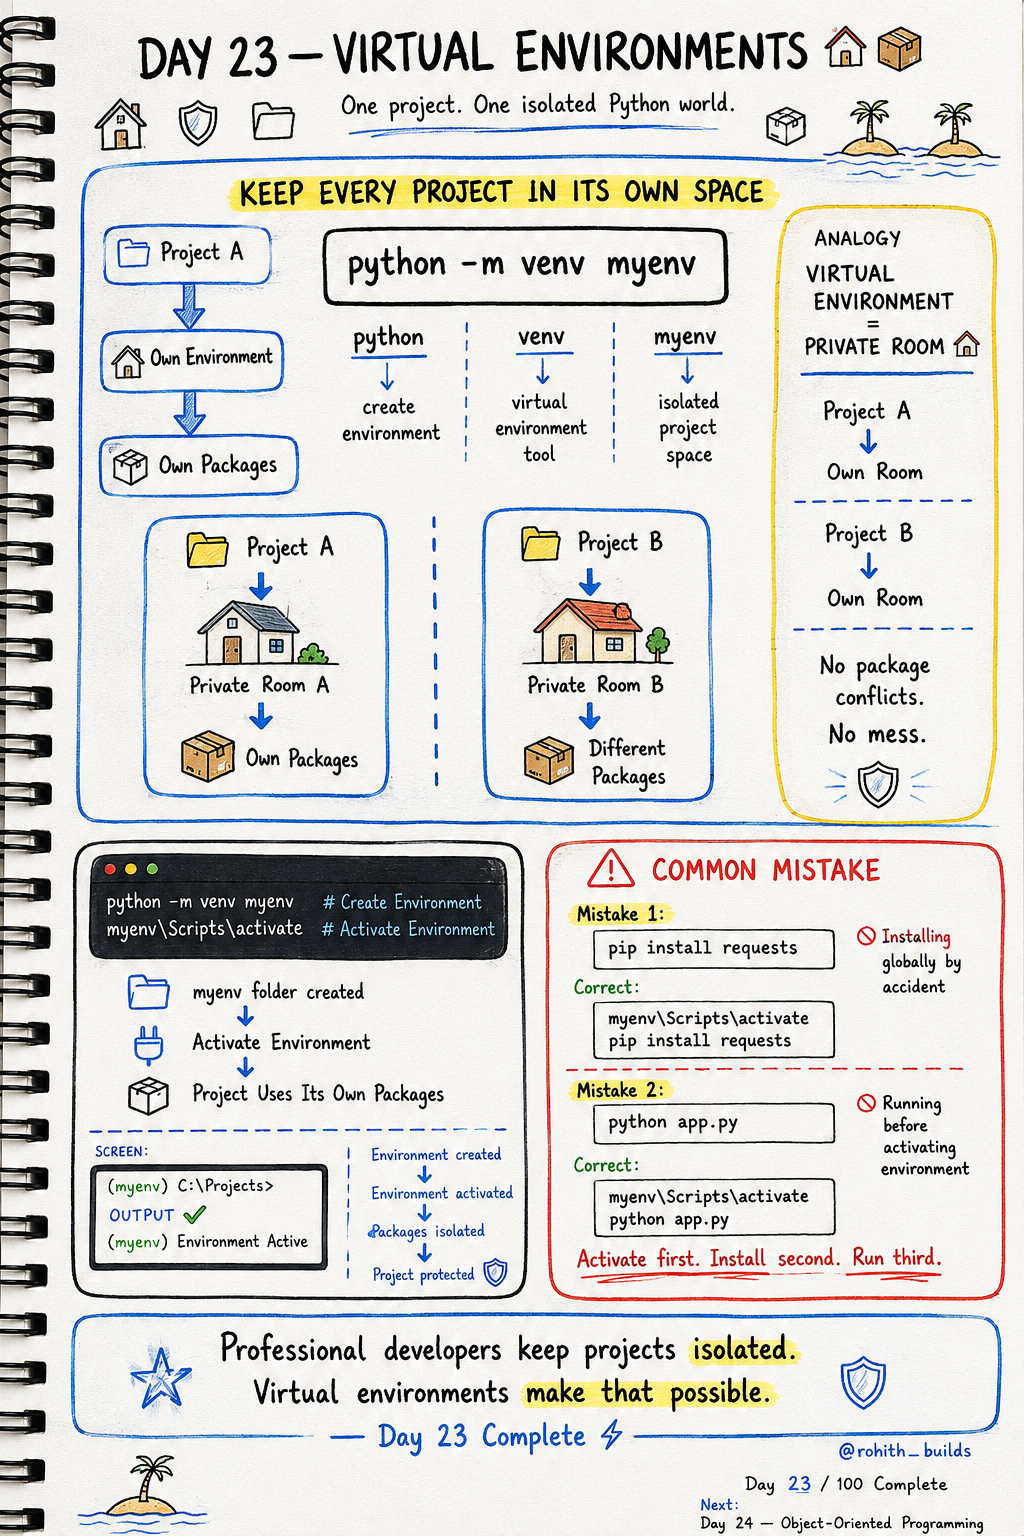 DAY 23 — VIRTUAL ENVIRONMENTS
One project. One isolated Python world.
KEEP EVERY PROJECT IN ITS OWN SPACE
Project A
Own Environment
Own Packages
python -m venv myenv
python
create
environment
venv
virtual
environment
tool
myenv
isolated
project
space
Project A
Private Room A
Own Packages
Project B
Private Room B
Different
Packages
ANALOGY
VIRTUAL
ENVIRONMENT
=
PRIVATE ROOM
Project A
Own Room
Project B
Own Room
No package
conflicts.
No mess.
python -m venv myenv # Create Environment
myenv\Scripts\activate # Activate Environment
myenv folder created
Activate Environment
Project Uses Its Own Packages
SCREEN:
(myenv) C:\Projects>
OUTPUT ✓
(myenv) Environment Active
Environment created
Environment activated
Packages isolated
Project protected
COMMON MISTAKE
Mistake 1:
pip install requests
Installing
globally by
accident
Correct:
myenv\Scripts\activate
pip install requests
Mistake 2:
python app.py
Running
before
activating
environment
Correct:
myenv\Scripts\activate
python app.py
Activate first. Install second. Run third.
Professional developers keep projects isolated.
Virtual environments make that possible.
— Day 23 Complete ⚡ —
@rohith_builds
Day 23 / 100 Complete
Next:
Day 24 — Object-Oriented Programming